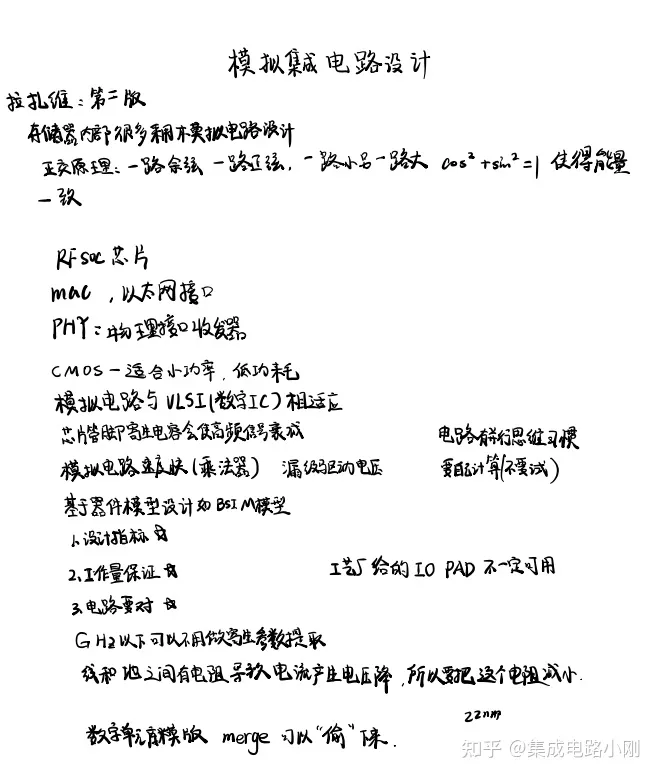 模拟集成电路设计
拉扎维：第二版
存储器内部很多利用模拟电路设计
正交原理：一路余弦 一路正弦，一路小另一路大 cos²+sin²=1 使得能量
一致
RFsoc芯片
mac，以太网接口
PHY：物理接口收发器
CMOS－适合小功率，低功耗
模拟电路与VLSI(数字IC)相适应
芯片管脚寄生电容会使高频信号衰减
电路有并行思维习惯
模拟电路速度快(乘法器) 漏级驱动电压
要自己计算(不要试)
基于器件模型设计如BSIM模型
1.设计指标☆
2.工作量保证☆
工艺厂给的IO PAD不一定可用
3.电路要对☆
GHz以下可以不用做寄生参数提取
线和地之间有电阻导致电流产生电压降，所以要把这个电阻减小.
22nm
数字单元有模版 merge可以“偷”下来.
知乎 @集成电路小刚